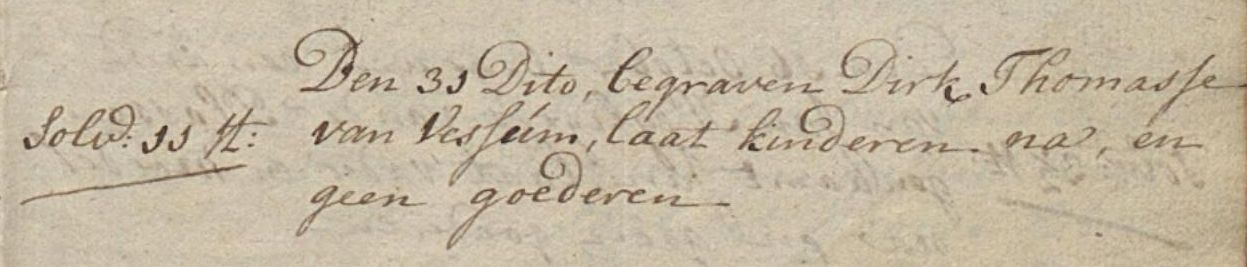 Den 31 Dito, begraven Dirk Thomasse
Solvd: 11 st: van Vessúm, laat kinderen na, en
geen goederen